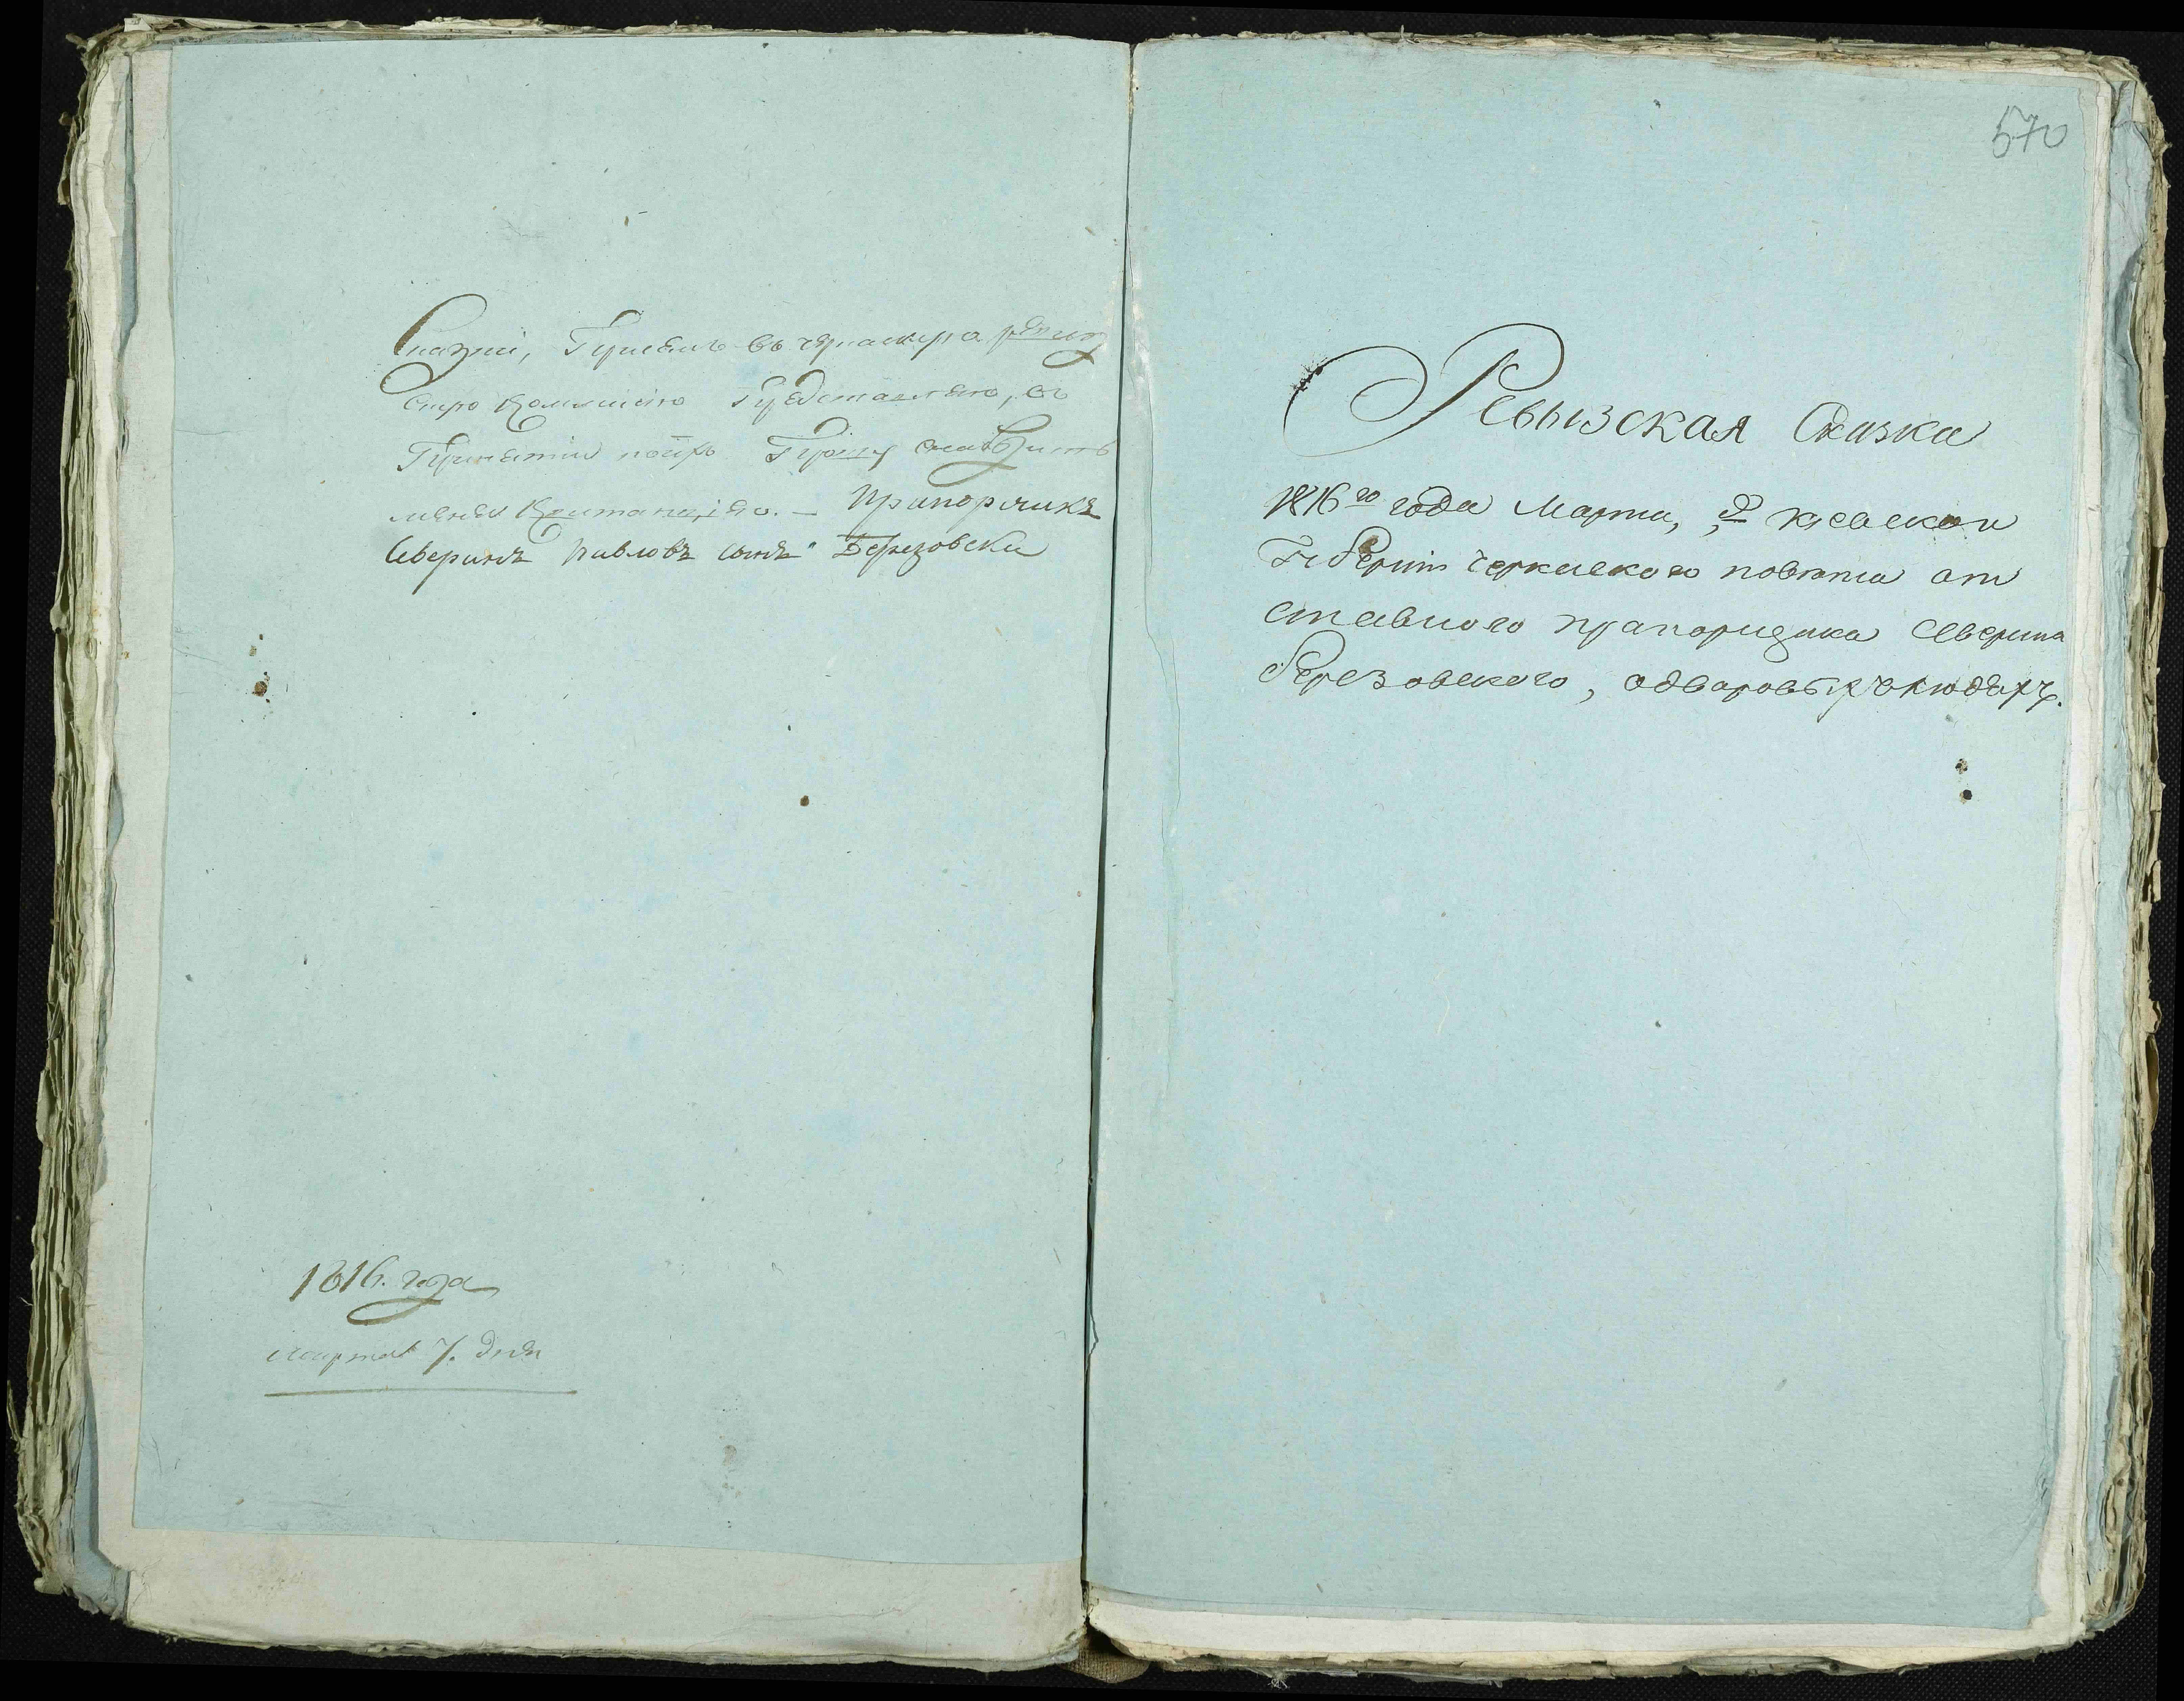 Сказки, при семъ въ черкаскую ревиз
скую комисию представляю, о
принятии прошу снабдить
меня квитанциею. — Прапорщикъ
Северинъ Павловъ сынъ Березовски
1816. года
марта 7. дня
570
Ревызская Сказка
1816го года Марта, киевскои
Губернии черкаского повета от
ставного прапорщика Северина
Березовского, одворовыхъ людяхъ.